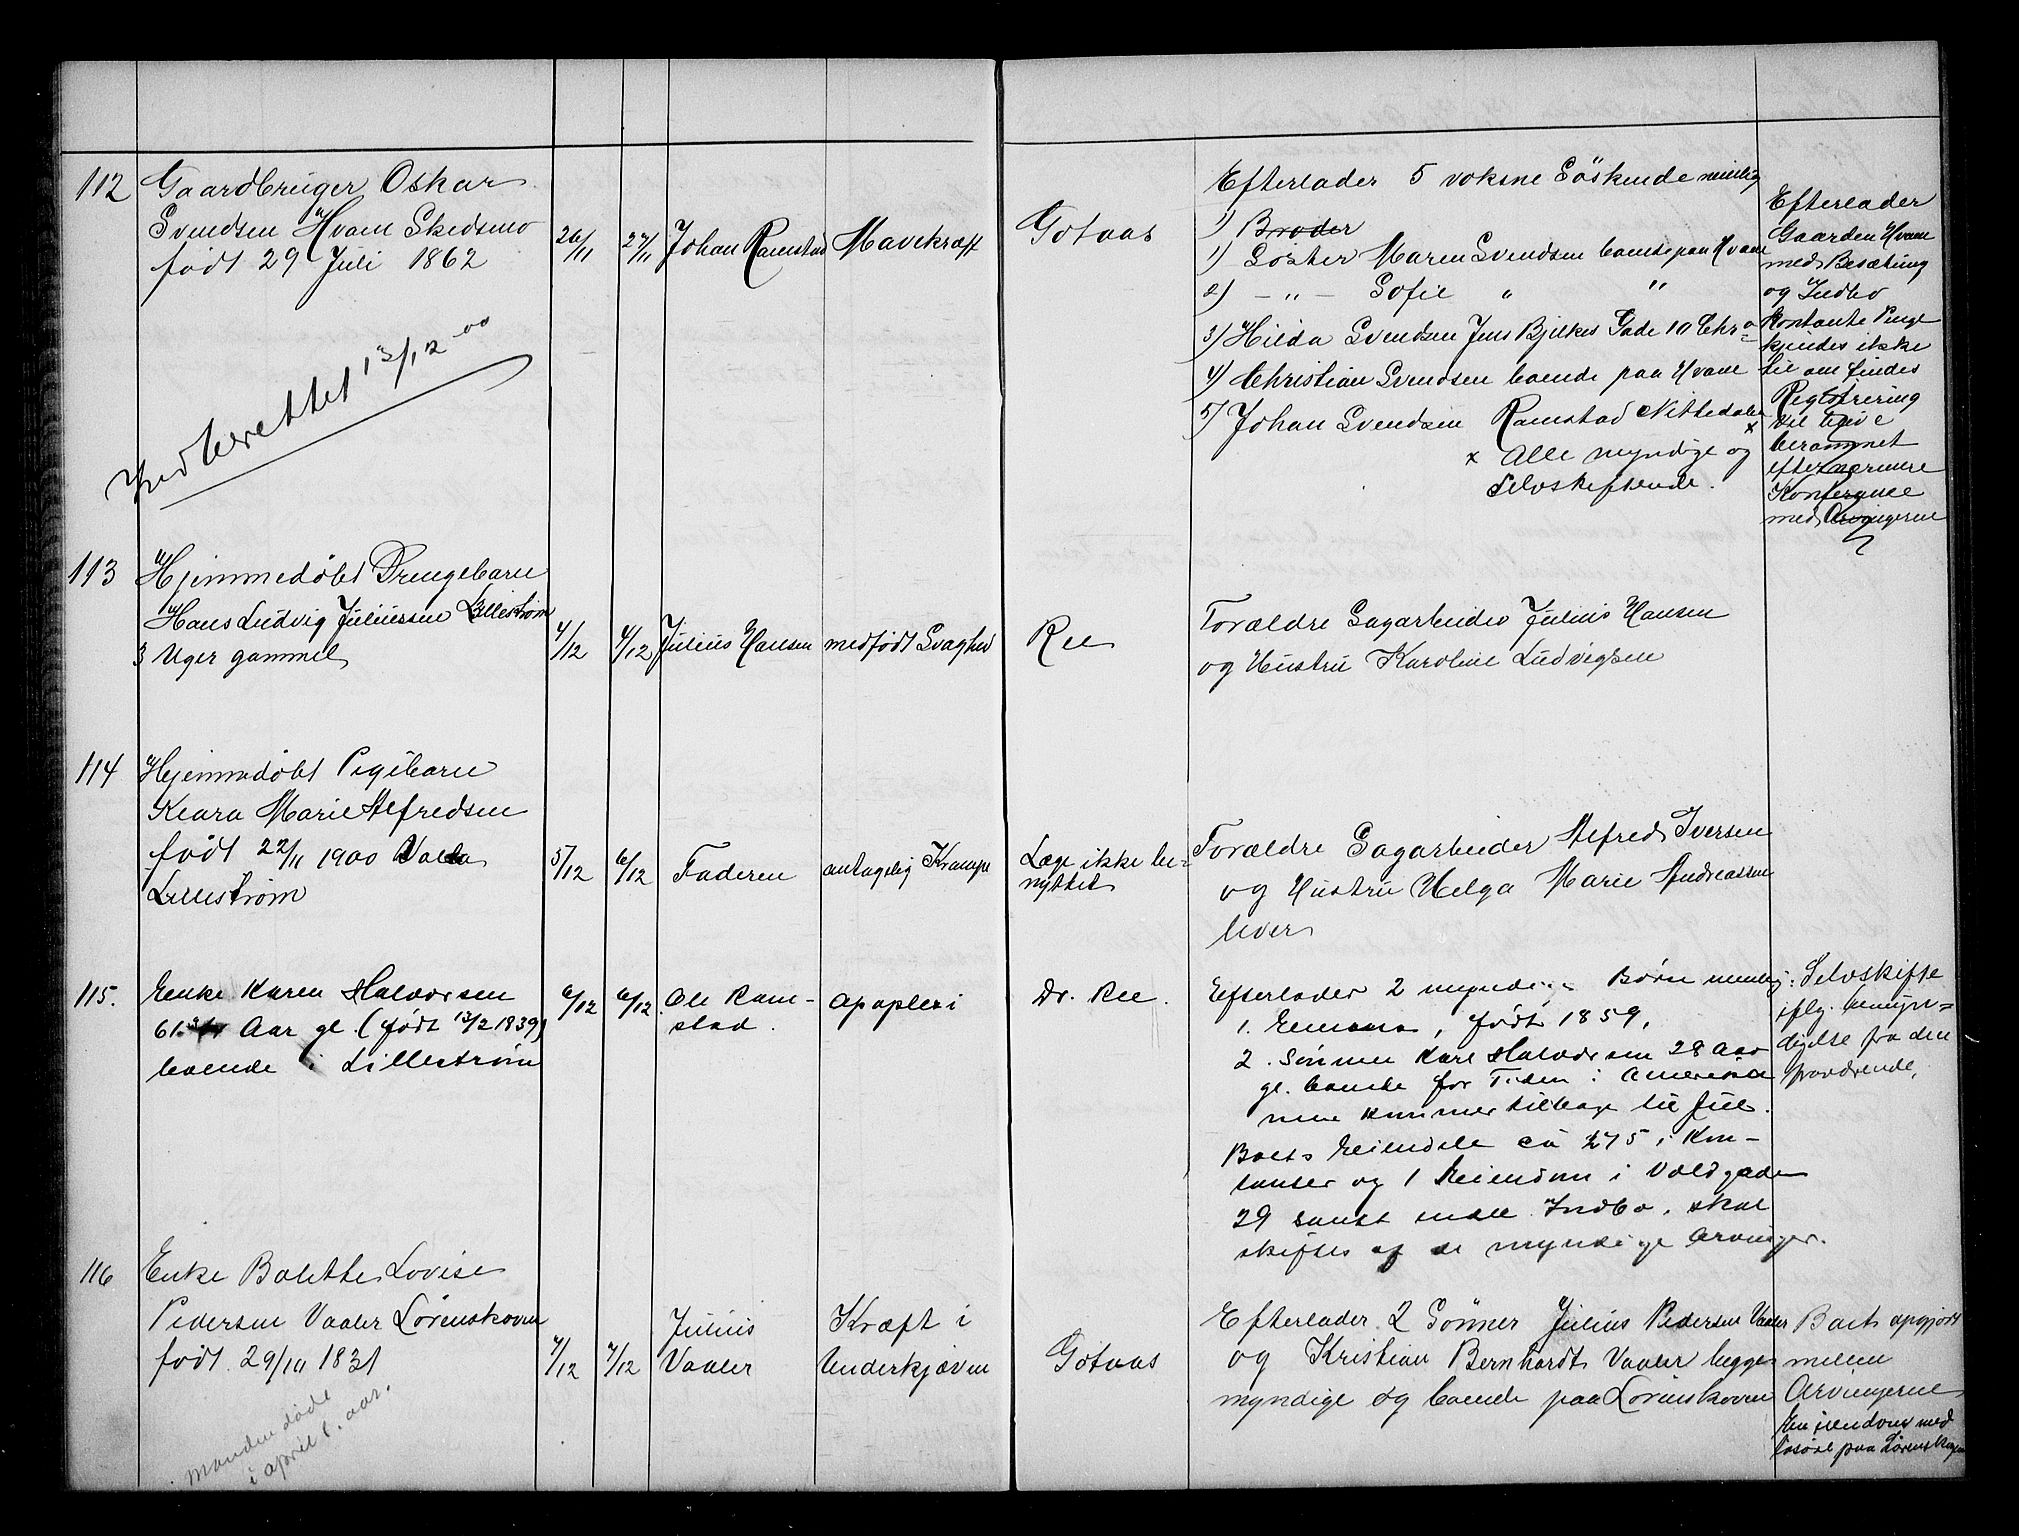 112
Gaardbruger Oskar
Svendsen Hvam Skedsmo
født 29 Juli 1862
26/11
27/11
Johan Ramstad
Mavekræft
Gotaas
Efterlader 5 voksne Söskende nemlig
1) Broder
1) Söster Maren Svendsen boende paa Hvam
2) – " – Sofie " "
3) Hilda Svendsen Jens Bjelkes Gade 10 Chr a
4) Christian Svendsen boende paa Hvam
5) Johan Svendsen Ramstad Nittedalen x
x Alle myndige og
Selvskiftende.
Efterlader
Gaarden Hvam
med Besætning
og Indbo
Kontante Penge
kjendes ikke
til om findes
Registrering
vil blive
berammet
efter nærmere
Konferance
med Arvingerne
Indberettet 13/12 00
113
Hjemmedøbt Drengebarn
Hans Ludvig Juliussen Lillestrøm
3 Uger gammel
4/12
4/12
Julius Hansen
medfødt Svaghed
Ree
Forældre Sagarbeider Julius Hansen
og Hustru Karoline Ludvigsen
114
Hjemmedøbt Pigebarn
Klara Marie Alfredsen
født 22/11 1900 Volla
Lillestrøm
5/12
6/12
Faderen
antagelig Krampe
Læge ikke be-
nyttet
Forældre Sagarbeider Alfred Iversen
og Hustru Helga Marie Andreassen
lever
115.
Enke Karen Halvorsen
61 Aar gl. (født 13/2 1839)
boende i Lillestrøm
6/12
6/12
Ole Ram-
stad.
Apoplexi
Dr. Ree.
Efterlader 2 myndige Børn nemlig:
1. Emma, født 1859,
2. Sønnen Karl Halvorsen 28 Aar
gl. boende for Tiden i Amerika
men kommer tilbage til Jul.
Boets Eiendele ca 275 i Kon-
tanter og 1 Eiendom i Voldgaden
29 samt endel Indbo, skal
skiftes af de myndige Arvinger.
Selvskifte
iflg. bemyn-
digelse fra den
fraværende,
116
Enke Bolette Lovise
Pedersen Vaaler Lørenskoven
født 29/10 1831
manden døde
i april f. aar.
7/12
7/12
Julius
Vaaler
Kræft i
Underkjæven
Gotaas
Efterlader 2 Sönner Julius Pedersen Vaaler
og Kristian Bernhardt Vaaler begge
myndige og boende paa Lörenskoven
Boets opgjort
mellem
Arvingerne
En eiendom med
løsøre paa Lørenskogen